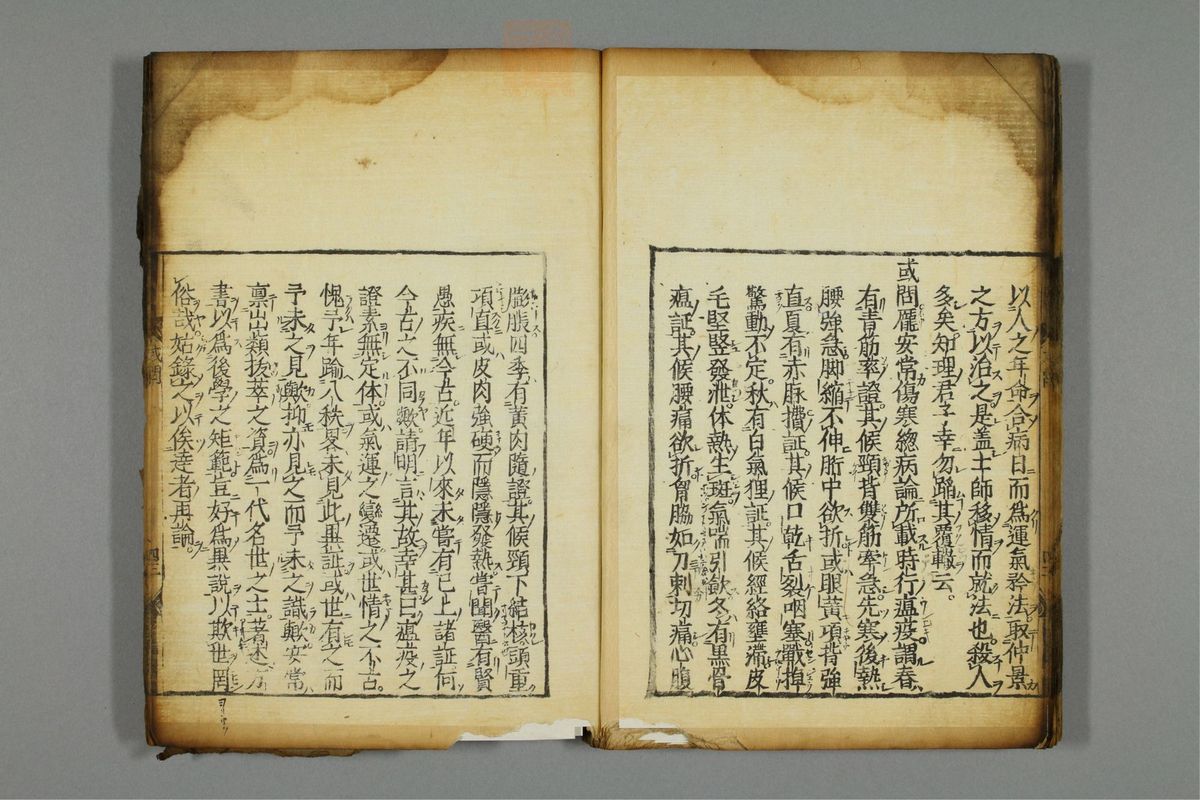 以人之年命合病日而為運氣鈐法取仲景
之方以治之是蓋士師移情而就法也殺人
多矣知理君子幸勿蹈其覆轍云
或問龐安常傷寒總病論所載時行瘟疫謂春
有青筋牽證其候頸背雙筋牽急先寒後熱
腰強急脚縮不伸胻中欲折或眼黄項背強
直夏有赤脉攢証其候口乾舌裂咽塞戰掉
驚動不定秋有白氣狸証其候經絡壅滯皮
毛堅竪發泄体熱生斑氣喘引飲冬有黒骨
瘟証其候腰痛欲折胷脇如刀刺切痛心腹
膨脹四季有黄肉隨證其候頸下結核頭重
項直或皮肉強硬而隱隱發熱嘗聞醫有賢
愚疾無今古近年以來未嘗有已上諸証何
今古之不同歟請明言其故幸甚曰瘟疫之
證素無定体或氣運之變遷或世情之不古
愧予年踰八秩畧未見此異証或世有之而
予未之見歟抑亦見之而予未之識歟安常
禀出類抜萃之資為一代名世之士著述方
書以為後學之矩範豈好為異說以欺世罔
俗哉姑錄之以俟達者再論